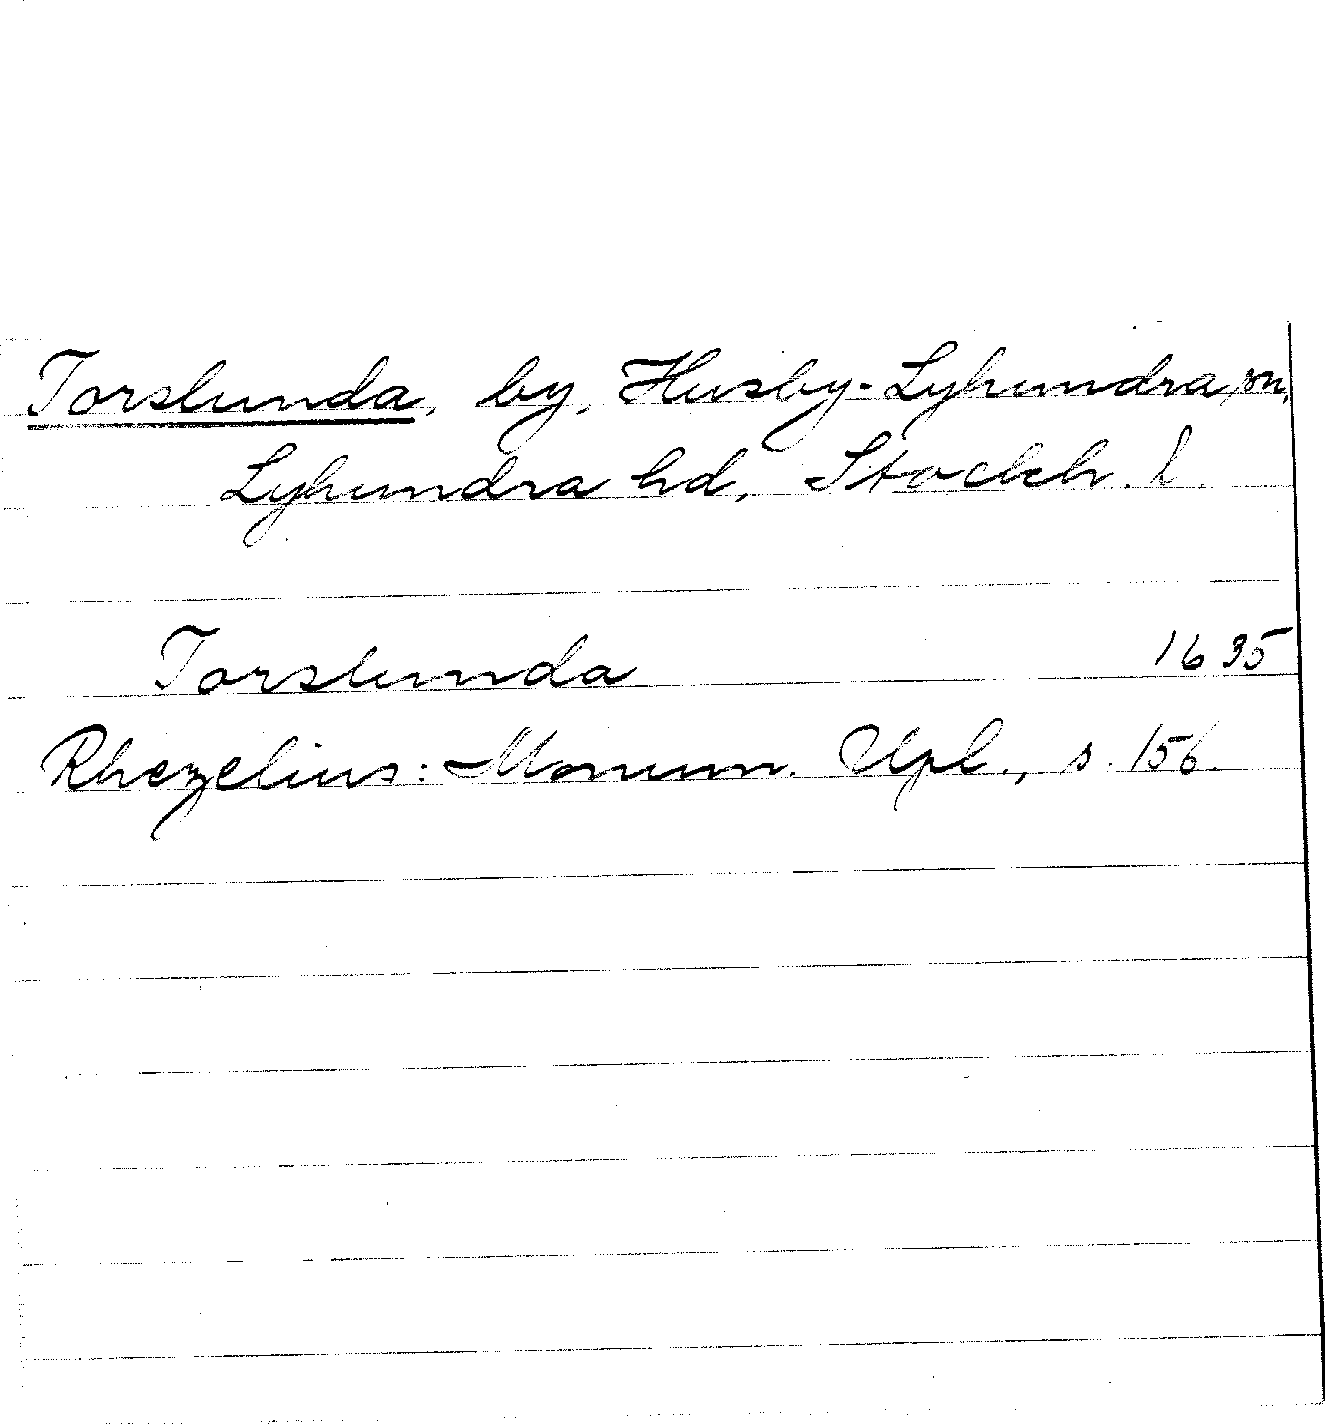 Torslunda, by, Husby-Lyhundra sn,
Lyhundra hd, Stockh. l.
Torslunda 1635
Rhezelius: Monum. Upl., s. 156.